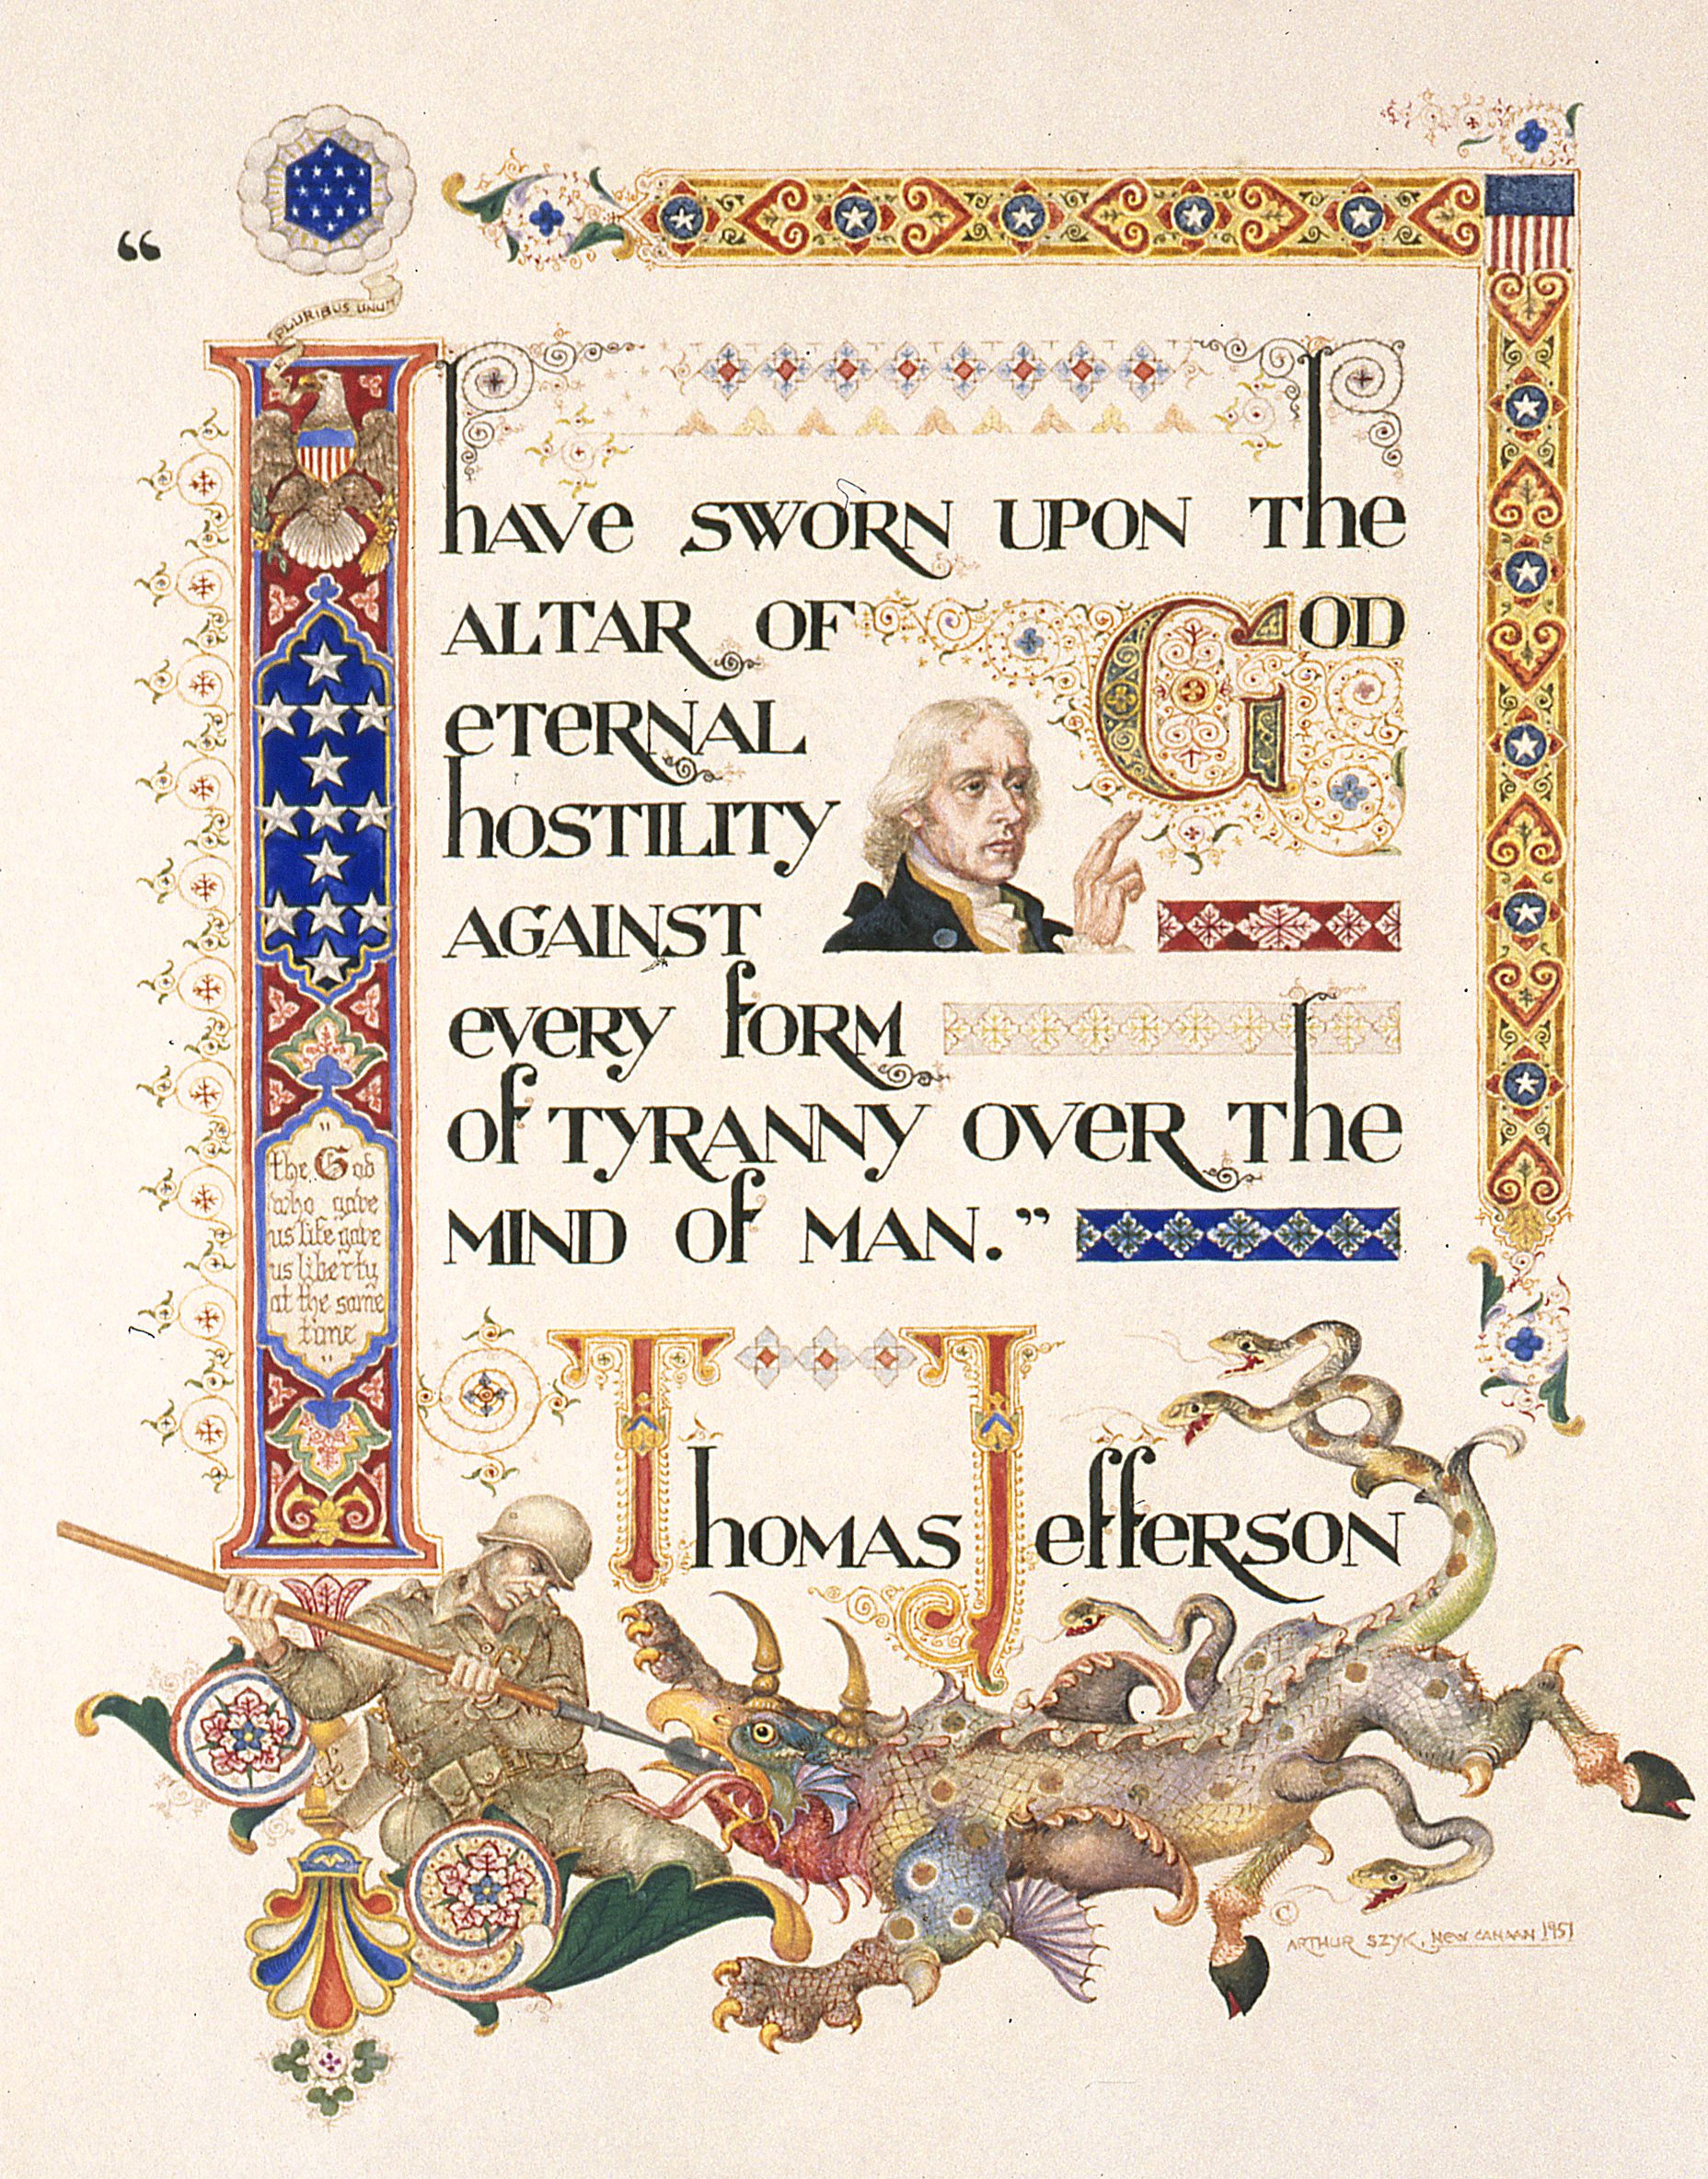 “
PLURIBUS UNUM
I have SWORN UPON The
ALTAR OF GOD
eTeRNAL
hOSTILITY
AGAINST
eveRY fORM
Of TYRANNY OVeR The
MIND Of MAN.”
"
the God
who gave
us life gave
us liberty
at the same
time
"
ThOMAS JeffeRSON
©
ARTHUR SZYK, NEW CANAAN 1951